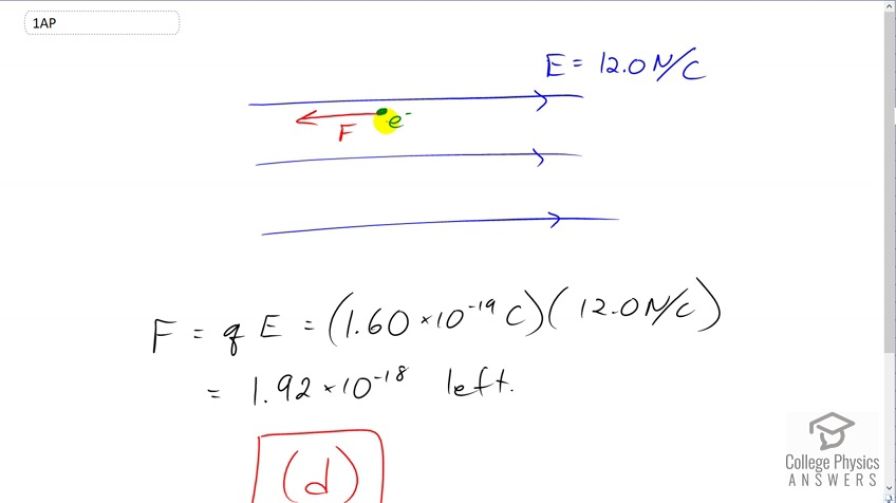 1AP
E = 12.0 N/C
e⁻
F
F = q E = (1.60 × 10⁻¹⁹ C)(12.0 N/C)
= 1.92 × 10⁻¹⁸ left.
(d)
College Physics
ANSWERS